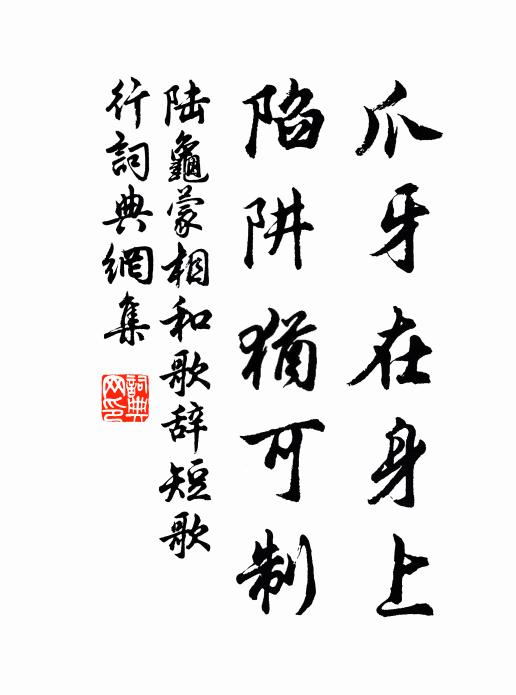 爪牙在身上
陷阱猶可制
陆龜蒙相和歌辞短歌
行詞典網集
詞典网印